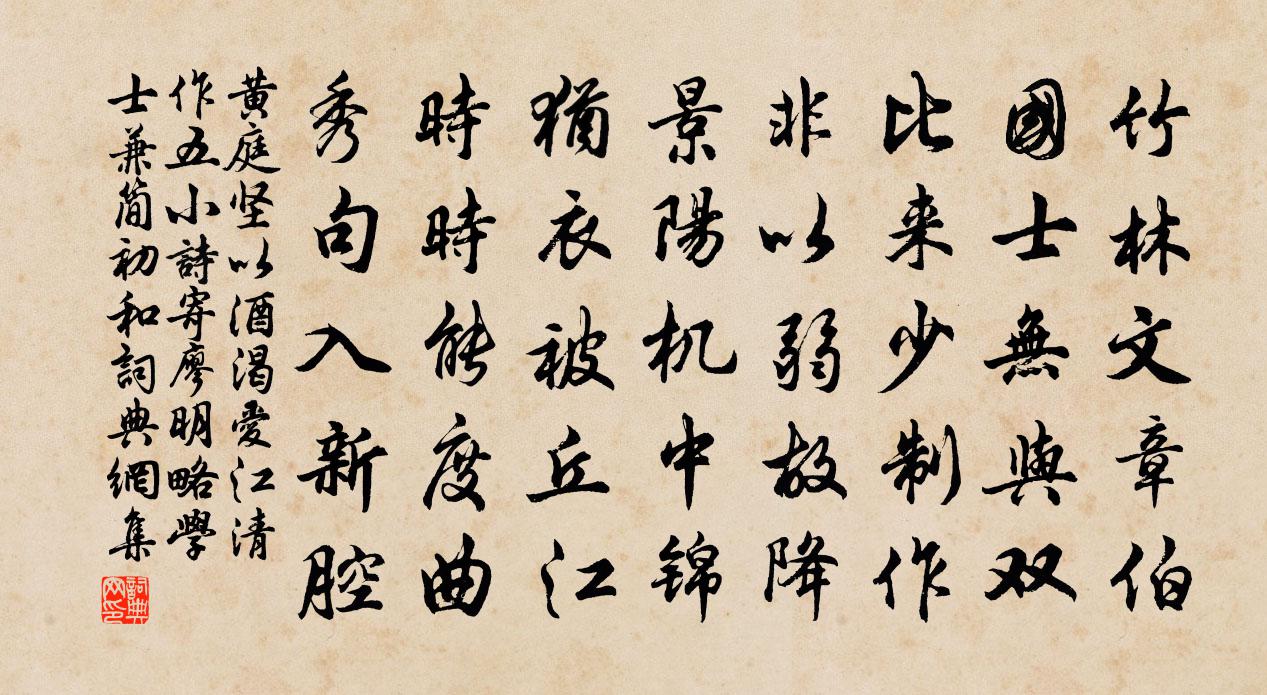 竹林文章伯
國士無與双
比来少制作
非以弱故降
景陽机中锦
猶衣被丘江
時時能度曲
秀句入新腔
黄庭坚以酒渴愛江清
作五小詩寄廖明略學
士兼简初和詞典網集
詞典
网印